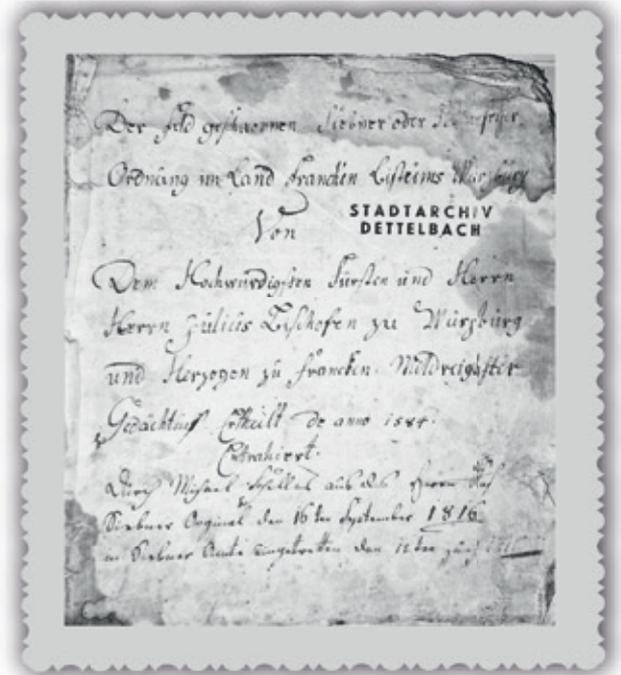 Der Feld geschwornen Siebner oder
Ordnung im Land Francken Bisteims Würzburg
STADTARCHIV
DETTELBACH
Von
Dem Hochwürdigsten Fürsten und Herrn
Herrn Julius Bischofen zu Würzburg
und Herzogen zu Francken
Gedächtnuß Ertheilt de anno 1584.
Extrahiert.
Durch Michael aus des Herrn
Siebner Original den 16ten September 1816
Siebner Amte eingetretten den 12ten